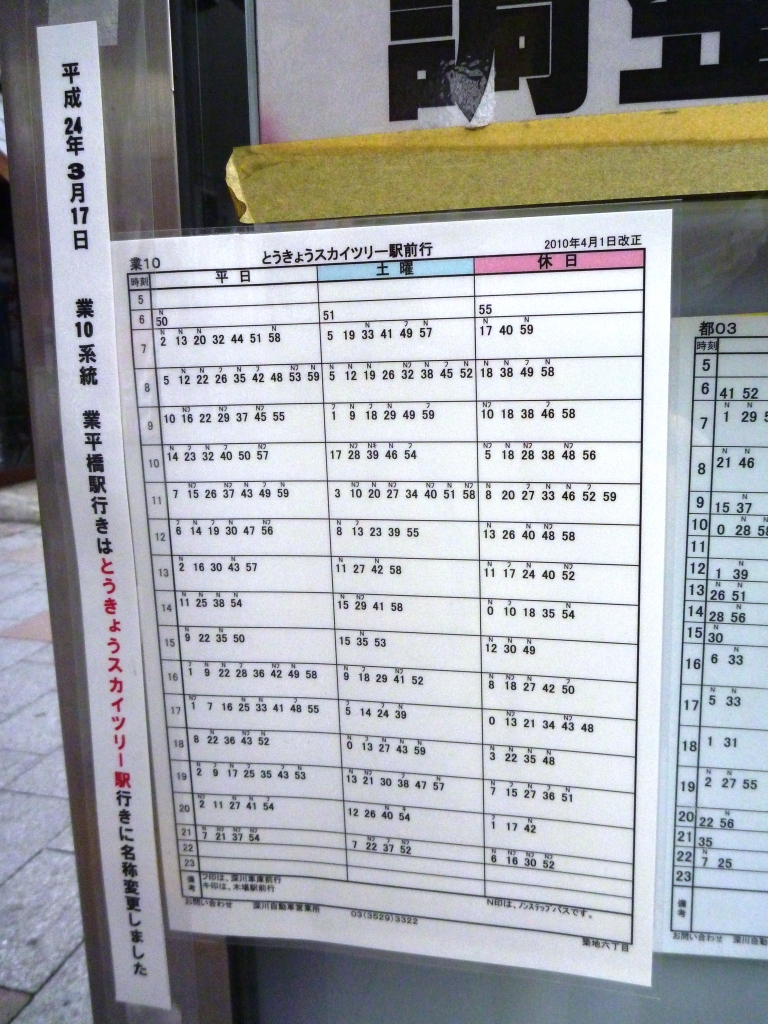 平成24年3月17日 業10系統 業平橋駅行きはとうきょうスカイツリー駅行きに名称変更しました
業10 とうきょうスカイツリー駅前行 2010年4月1日改正
時刻 平日 土曜 休日
5
6 50 51 55
7 2 13 20 32 44 51 58 5 19 33 41 49 57 17 40 59
8 5 12 22 26 35 42 48 53 59 5 12 19 26 32 38 45 52 18 38 49 58
9 10 16 22 29 37 45 55 1 9 18 29 49 59 10 18 38 46 58
10 14 23 32 40 50 57 17 28 39 46 54 5 18 28 38 48 56
11 7 15 26 37 43 49 59 3 10 20 27 34 40 51 58 8 20 27 33 46 52 59
12 6 14 19 30 47 56 8 13 23 39 55 13 26 40 48 58
13 2 16 30 43 57 11 27 42 58 11 17 24 40 52
14 11 25 38 54 15 29 41 58 0 10 18 35 54
15 9 22 35 50 15 35 53 12 30 49
16 1 9 22 28 36 42 49 58 9 18 29 41 52 8 18 27 42 50
17 1 7 16 25 33 41 48 55 5 14 24 39 0 13 21 34 43 48
18 8 22 36 43 52 0 13 27 43 59 3 22 35 48
19 2 9 17 25 35 43 53 13 21 30 38 47 57 7 15 27 36 51
20 2 11 27 41 54 12 26 40 54 1 17 42
21 7 21 37 54 7 22 37 52 6 16 30 52
22
23
備考 フ印は、深川車庫前行
キ印は、木場駅前行 N印は、ノンステップバスです。
お問い合わせ 深川自動車営業所 03(3529)3322 築地六丁目
都03
時刻
5
6 41 52
7 1 29
8 21 46
9 15 37
10 0 28 58
11
12 1 39
13 26 51
14 28 56
15 30
16 6 33
17 5 33
18 1 31
19 2 27 55
20 22 56
21 35
22 7 25
23
備考
お問い合わせ 深川自動